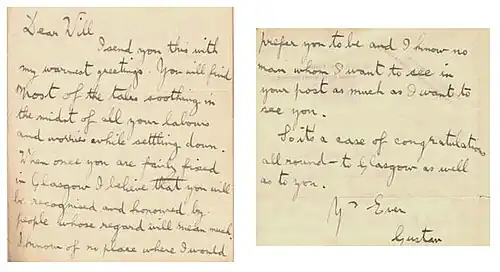 Dear Will
I send you this with
my warmest greetings. You will find
most of the tales soothing in
the midst of all your labours
and worries while settling down.
When once you are fairly fixed
in Glasgow I believe that you will
be recognised and honoured by
people whose regard will mean much.
I know of no place where I would
prefer you to be and I know no
man whom I want to see in
your post as much as I want to
see you.
So its a case of congratulations
all round - to Glasgow as well
as to you.
Yrs Ever
Gustav